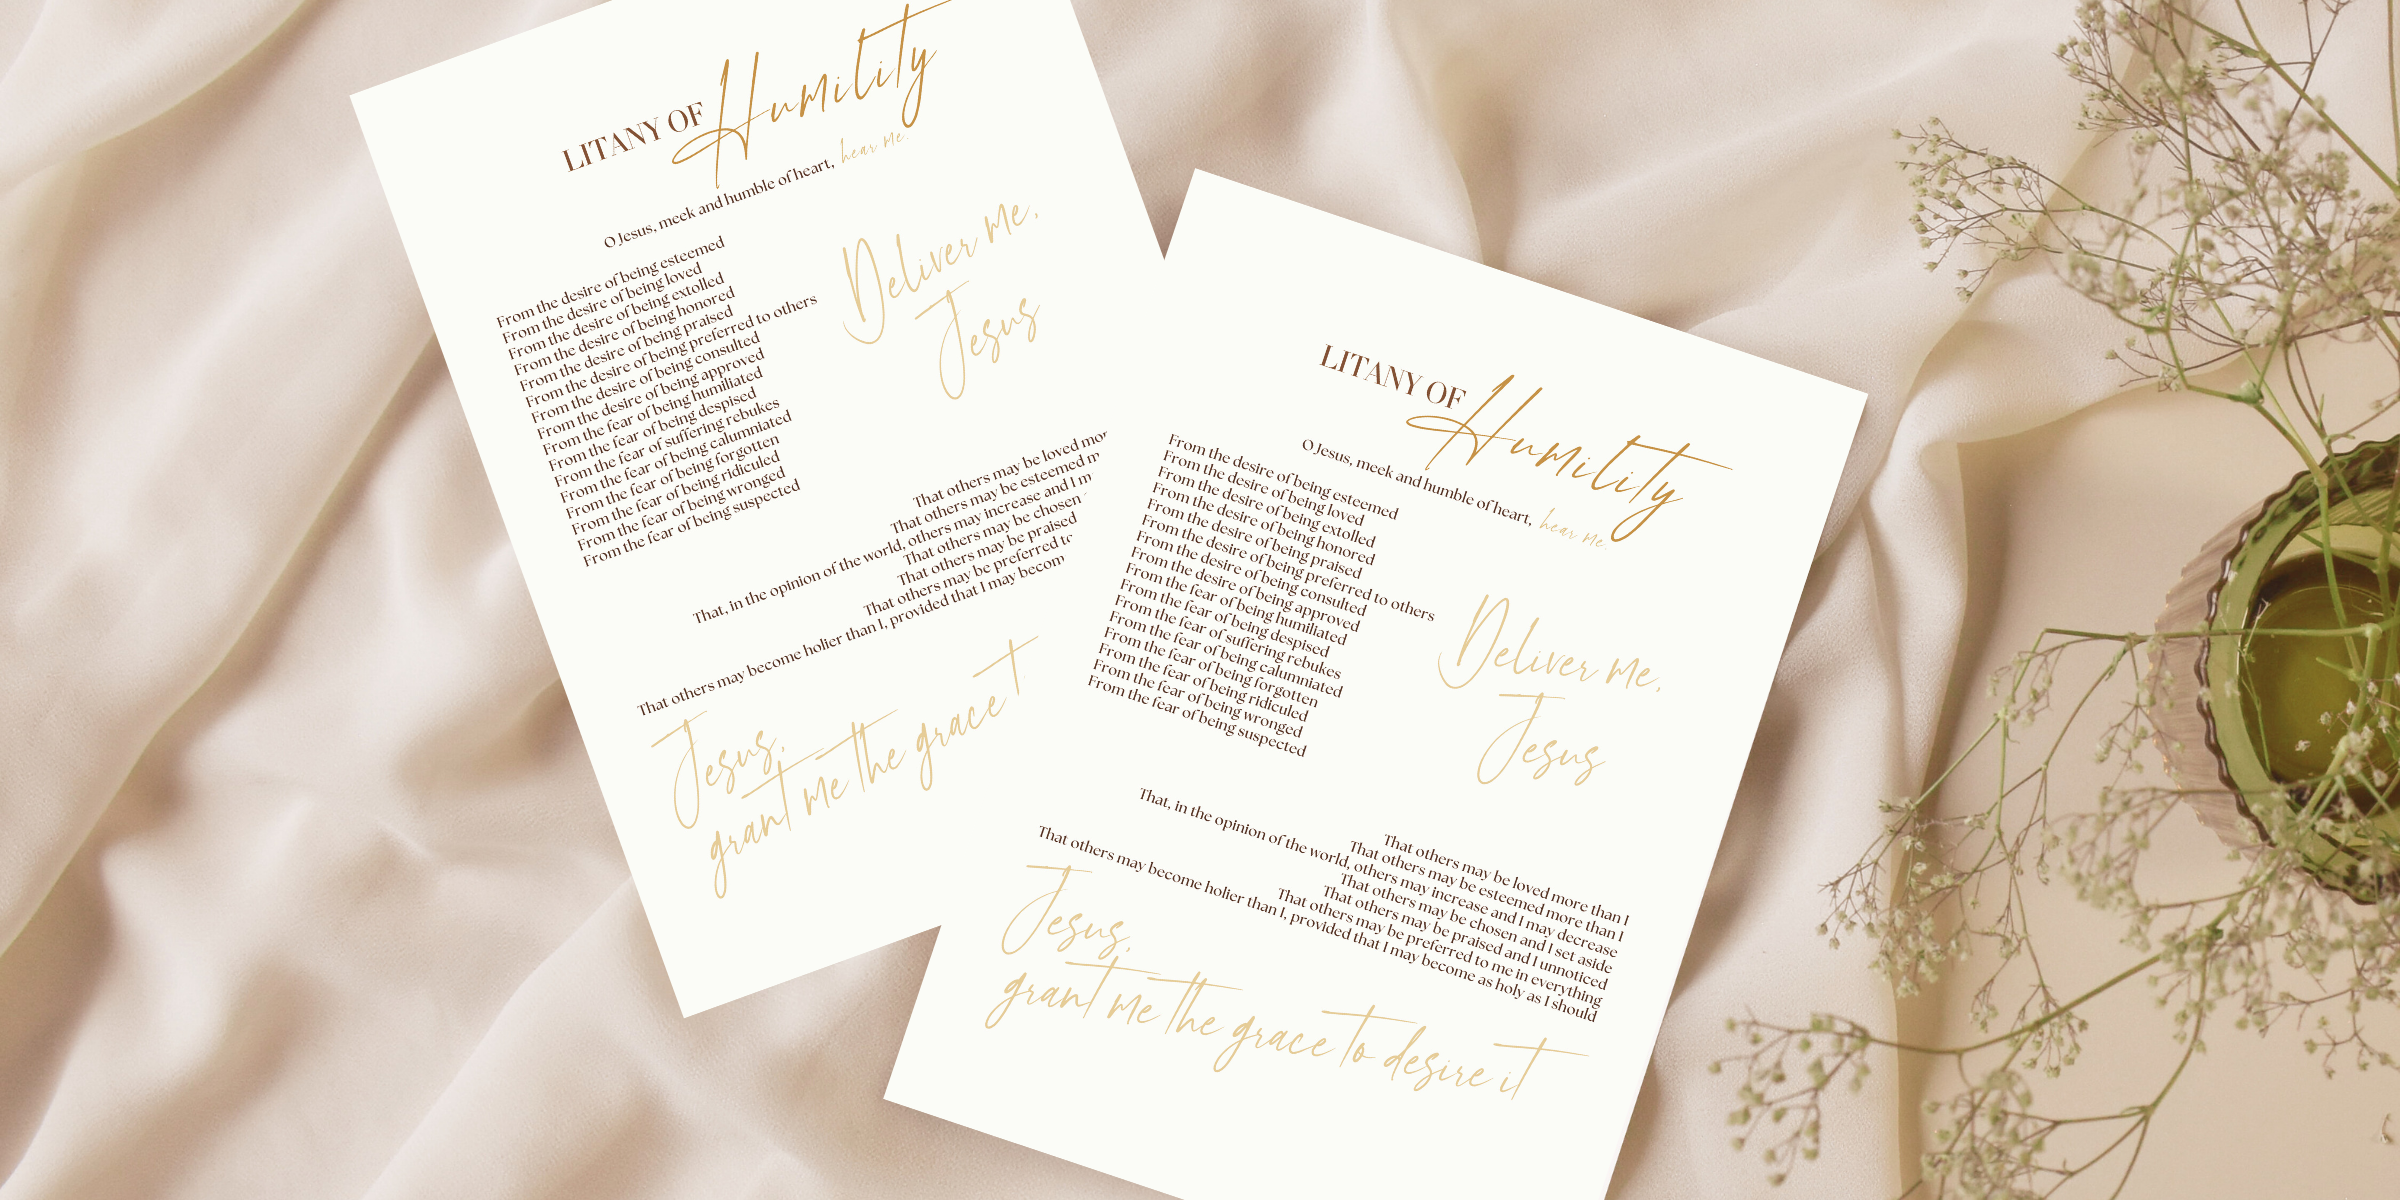 LITANY OF Humility
O Jesus, meek and humble of heart, hear me.
From the desire of being esteemed
From the desire of being loved
From the desire of being extolled
From the desire of being honored
From the desire of being praised
From the desire of being preferred to others
From the desire of being consulted
From the desire of being approved
From the fear of being humiliated
From the fear of being despised
From the fear of suffering rebukes
From the fear of being calumniated
From the fear of being forgotten
From the fear of being ridiculed
From the fear of being wronged
From the fear of being suspected
Deliver me,
Jesus
That others may be loved mor
That others may be esteemed m
That, in the opinion of the world, others may increase and I m
That others may be chosen
That others may be praised
That others may be preferred to
That others may become holier than I, provided that I may becom
Jesus,
grant me the grace t
LITANY OF Humility
O Jesus, meek and humble of heart, hear me
From the desire of being esteemed
From the desire of being loved
From the desire of being extolled
From the desire of being honored
From the desire of being praised
From the desire of being preferred to others
From the desire of being consulted
From the desire of being approved
From the fear of being humiliated
From the fear of being despised
From the fear of suffering rebukes
From the fear of being calumniated
From the fear of being forgotten
From the fear of being ridiculed
From the fear of being wronged
From the fear of being suspected
Deliver me,
Jesus
That others may be loved more than I
That others may be esteemed more than I
That, in the opinion of the world, others may increase and I may decrease
That others may be chosen and I set aside
That others may be praised and I unnoticed
That others may be preferred to me in everything
That others may become holier than I, provided that I may become as holy as I should
Jesus,
grant me the grace to desire it